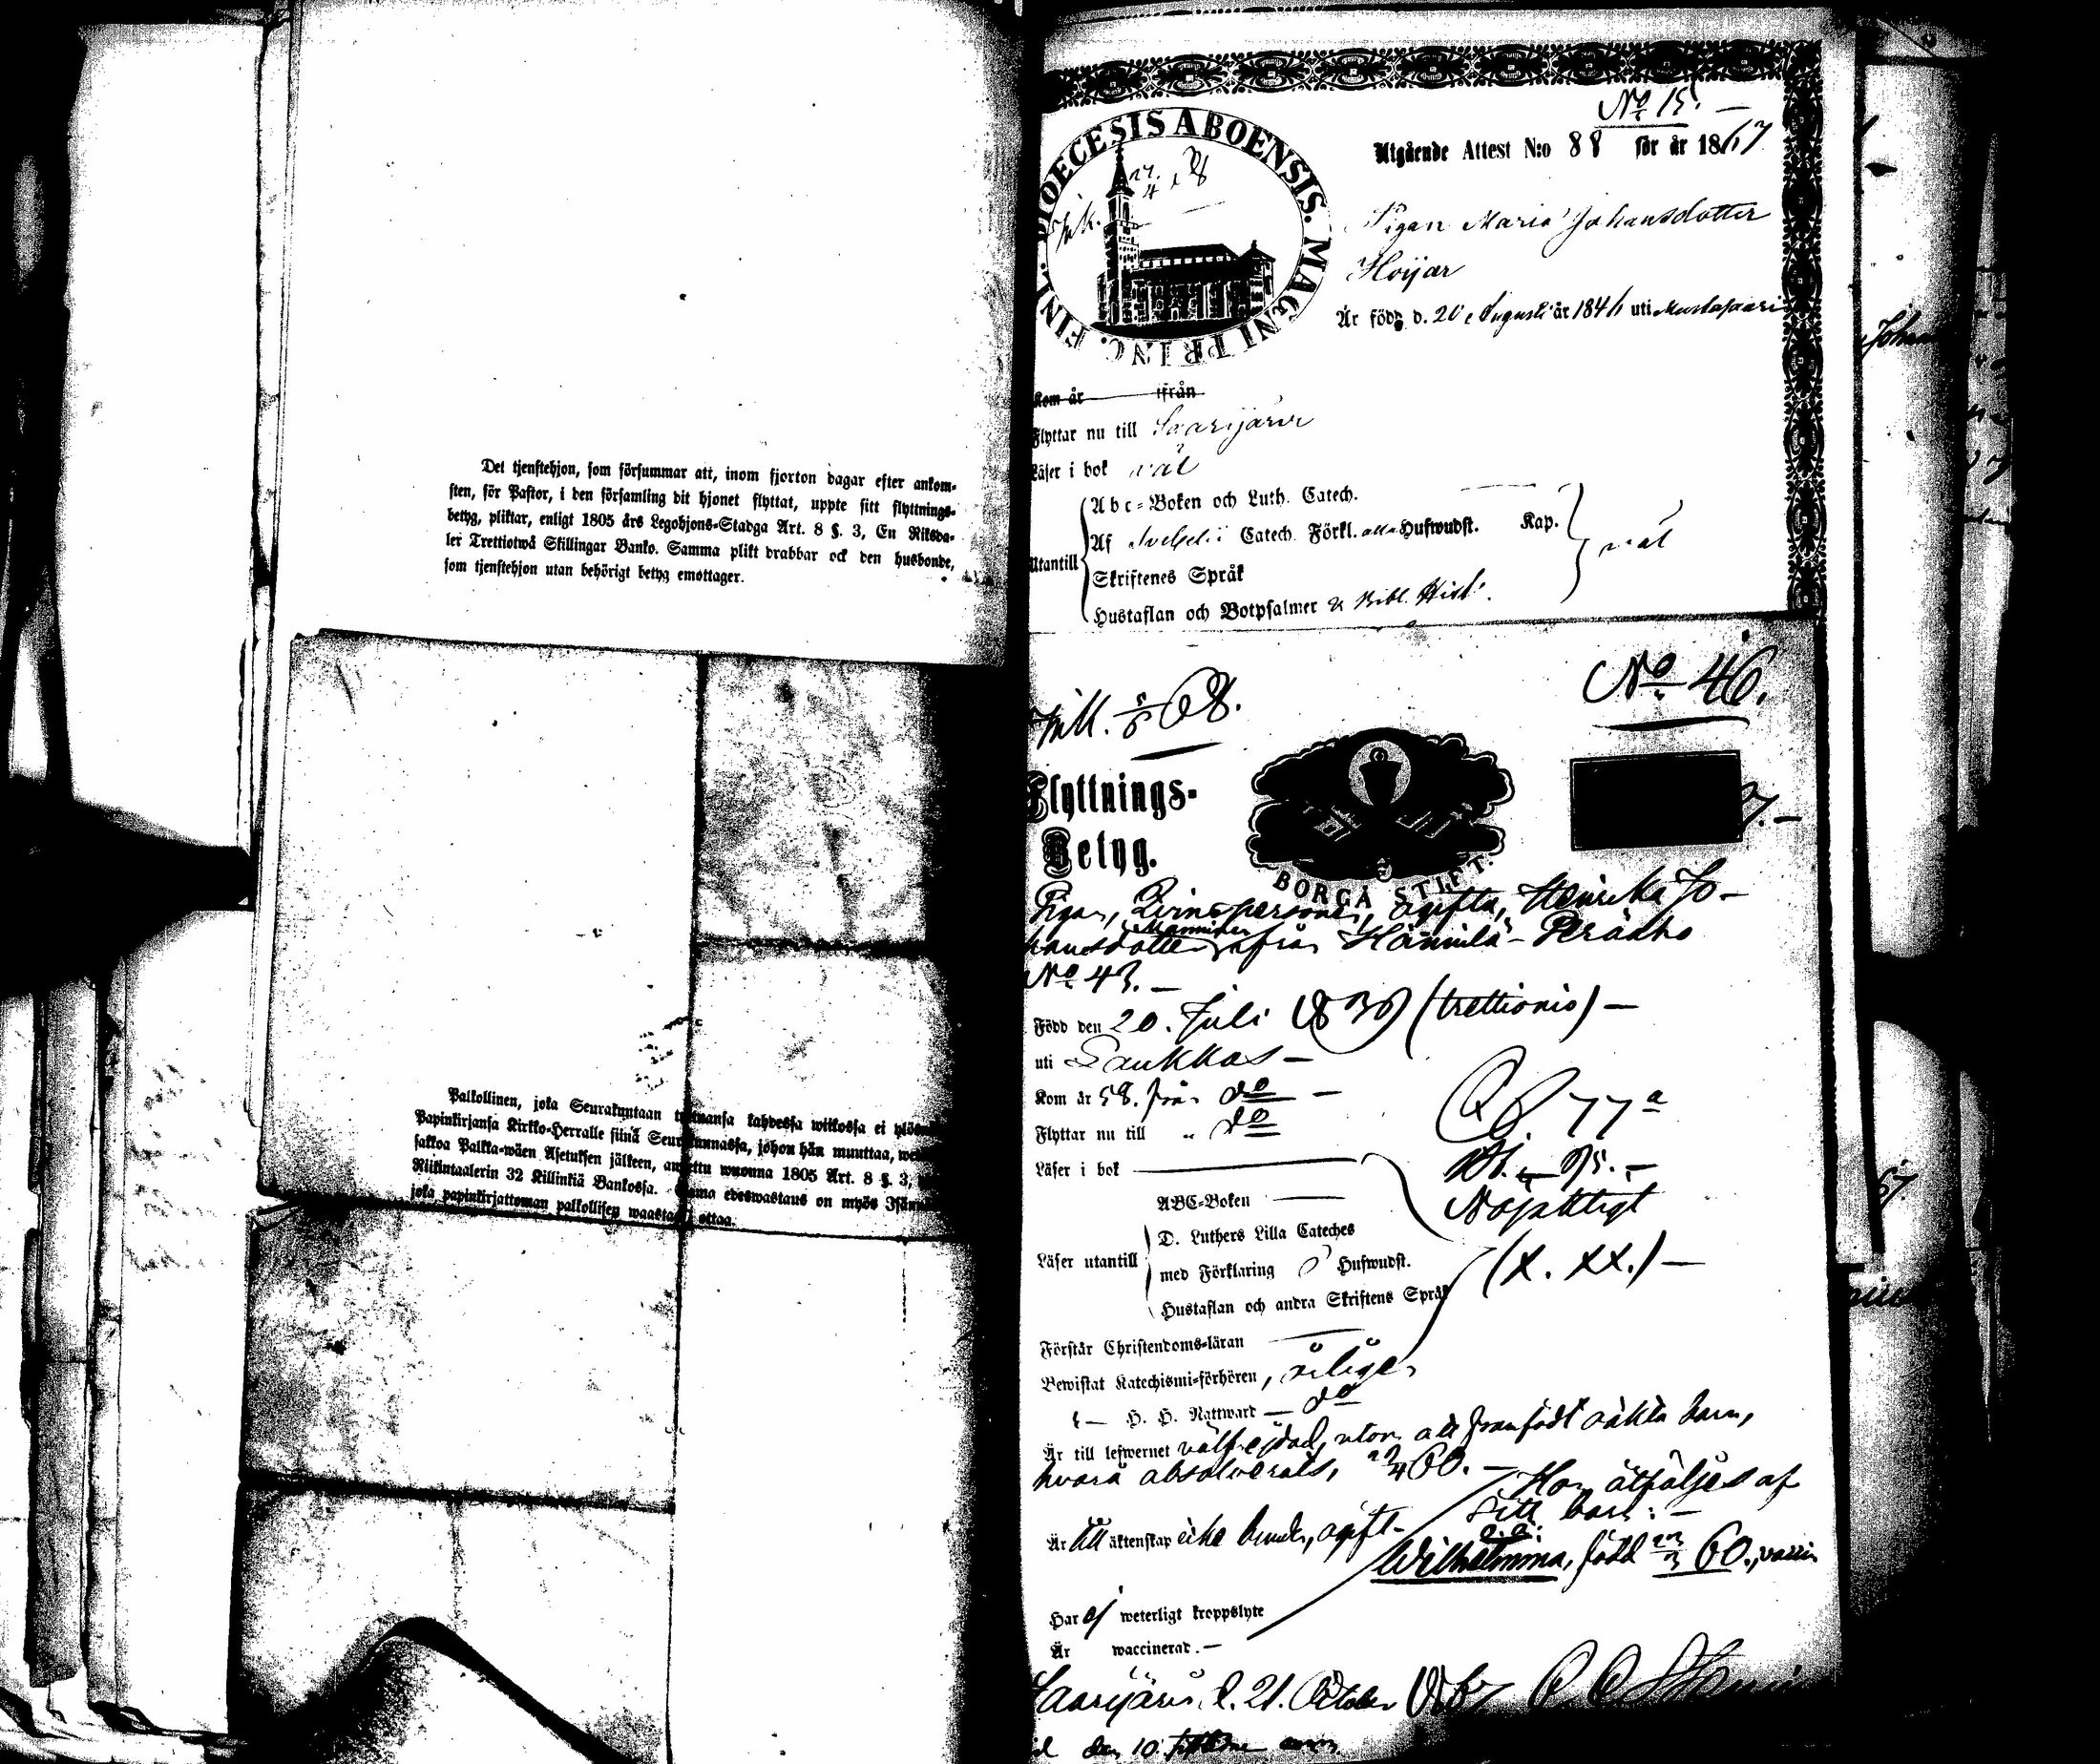 Det tjenstehjon, som försummar att, inom fjorton dagar efter ankom-
sten, för Pastor, i den församling dit hjonet flyttat, uppte sitt flyttnings-
betyg, pliktar, enligt 1805 års Legohjons-Stadga Art. 8 §. 3, En Riksda-
ler Trettiotwå Skillingar Banko. Samma plikt drabbar ock den husbonde,
som tjenstehjon utan behörigt betyg emottager.
Palkollinen, joka Seurakuntaan kahdessa wiikossa ei
Papinkirjansa Kirkko-Herralle siinä Seurakunnassa, johon hän muuttaa,
sakkoa Palkka-wäen Asetuksen jälkeen, annettu wuonna 1805 Art. 8 §. 3,
Riikintaalerin 32 Killinkiä Bankossa. Sama edeswastaus on myös
joka papinkirjattoman palkollisen waastaan ottaa.
No 15.
DIOECESIS ABOENSIS. MAGNI PRINC. FINL.
Utgående Attest N:o 88 för år 1867
Pigan Maria Johansdotter
Höijar
Är född d. 20 Augusti år 1846 uti Mustasaari
Kom år ifrån
Flyttar nu till Saarijärvi
Läser i bok väl
Abc-Boken och Luth. Catech.
Af Svebelii Catech. Förkl. alla Hufwudst. Kap.
Utantill väl
Skriftenes Språk
Hustaflan och Botpsalmer & Bibl. Hist.
No 46.
68.
Flyttnings-
Betyg.
BORGÅ STIFT.
Pigan, Qvinspersonen, ogifta, Henrika Jo-
hansdotter Manninen ifrån Hännilä-Peräaho
No 43.
Född den 20. Juli 1839 (trettionio)
uti Laukkas
Kom år 58. från do
Flyttar nu till do
77a
Läser i bok
Nöjaktigt
ABC-Boken
D. Luthers Lilla Cateches
Läser utantill
med Förklaring Hufwudst.
(x. xx.)
Hustaflan och andra Skriftens Språk
Förstår Christendoms-läran
Bewistat Katechismi-förhören, årligen
H. H. Nattward do
Är till lefwernet välfrejdad, utom att framfödt oäkta barn,
hvarå absolverats, 60.
Hon åtföljes af
sitt barn:
Är till äktenskap icke bunden, ogift
Wilhelmina, född 60., vaccin
Har ej weterligt kroppslyte
Är waccinerad.
Saarijärvi, d. 21. October 1867